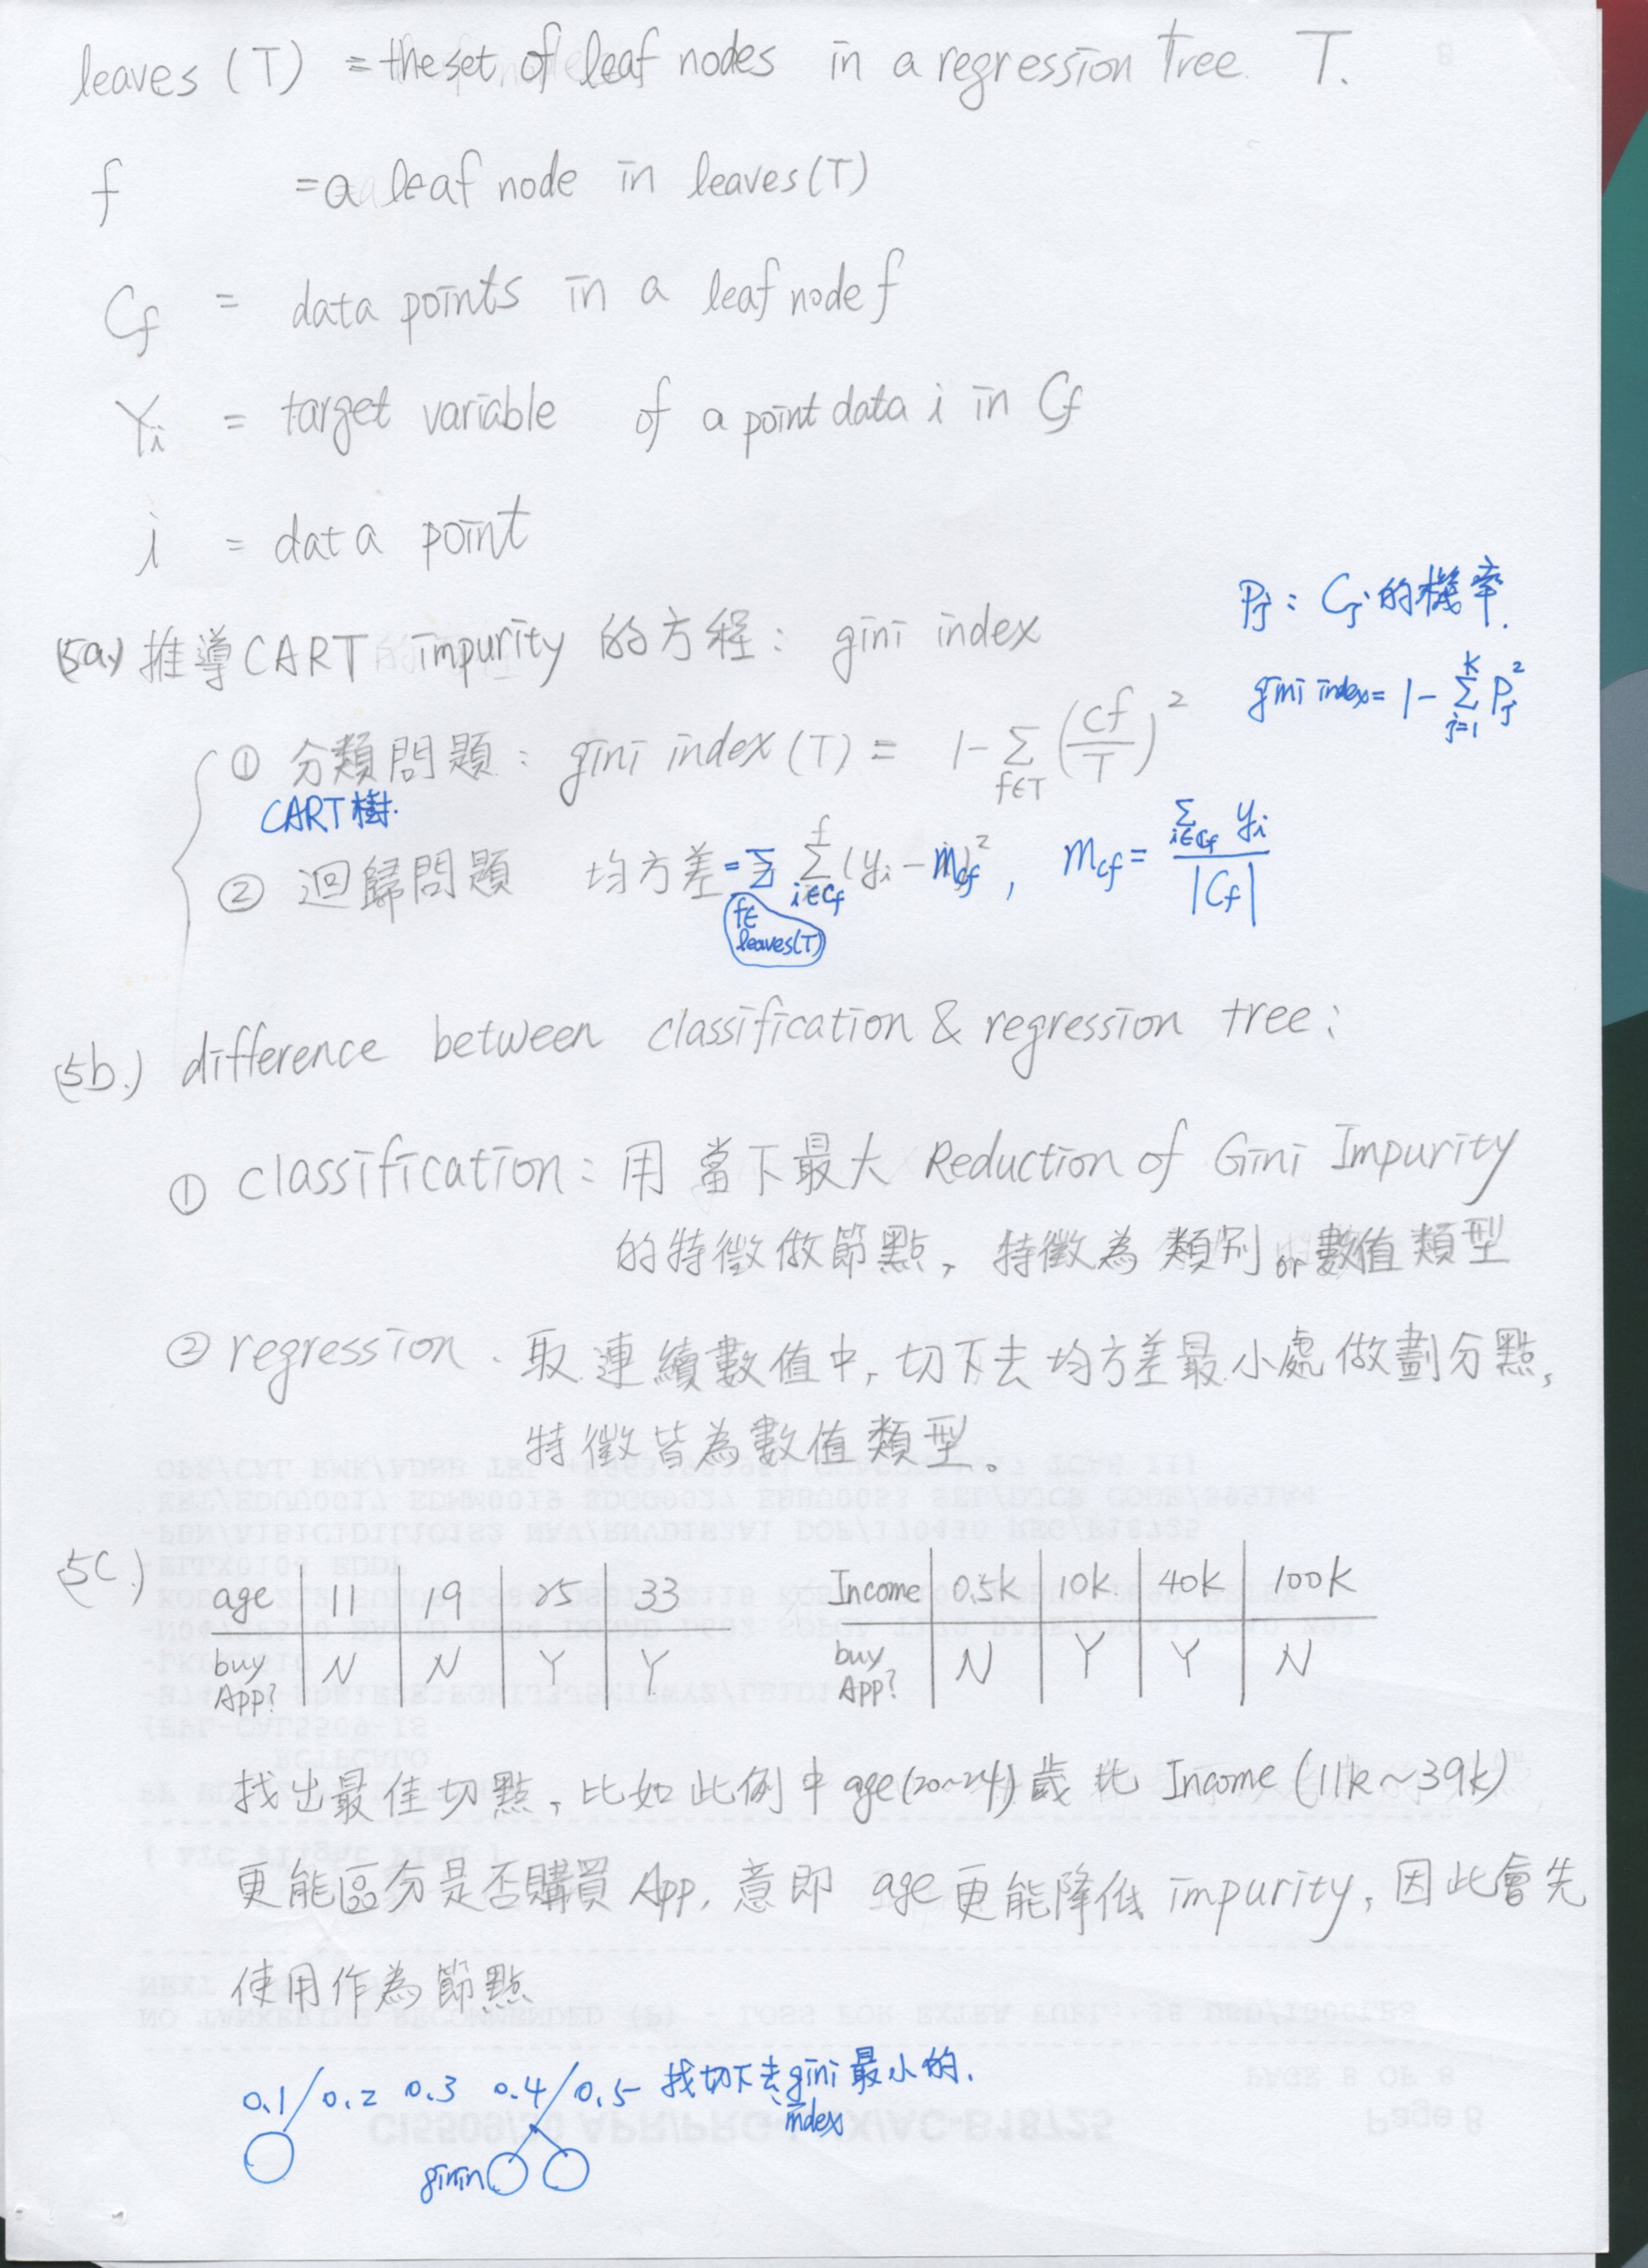 leaves (T) = the set of leaf nodes in a regression tree. T.
f = a leaf node in leaves(T)
Cf = data points in a leaf node f
Yi = target variable of a point data i in Cf
i = data point
Pj : Cj 的機率.
(5a) 推導CART impurity 的方程: gini index
gini index = 1 - Σ_{j=1}^{K} Pj²
① 分類問題: gini index (T) = 1 - Σ_{f∈T} (cf/T)²
CART樹.
② 迴歸問題 均方差 = Σ_{f∈leaves(T)} Σ_{i∈Cf}^{f} (yi - mcf)², mcf = Σ_{i∈Cf} yi / |Cf|
(5b.) difference between classification & regression tree:
① classification: 用當下最大 Reduction of Gini Impurity
的特徵做節點, 特徵為類別 or 數值類型
② regression. 取連續數值中, 切下去均方差最小處做劃分點,
特徵皆為數值類型。
(5c.)
age | 11 | 19 | 25 | 33
buy App? | N | N | Y | Y
Income | 0.5k | 10k | 40k | 100k
buy App? | N | Y | Y | N
找出最佳切點, 比如此例中 age(20~24)歲 比 Income (11k~39k)
更能區分是否購買 App, 意即 age 更能降低 impurity, 因此會先
使用作為節點
0.1 / 0.2 0.3 0.4 / 0.5 找切下去gini index 最小的.